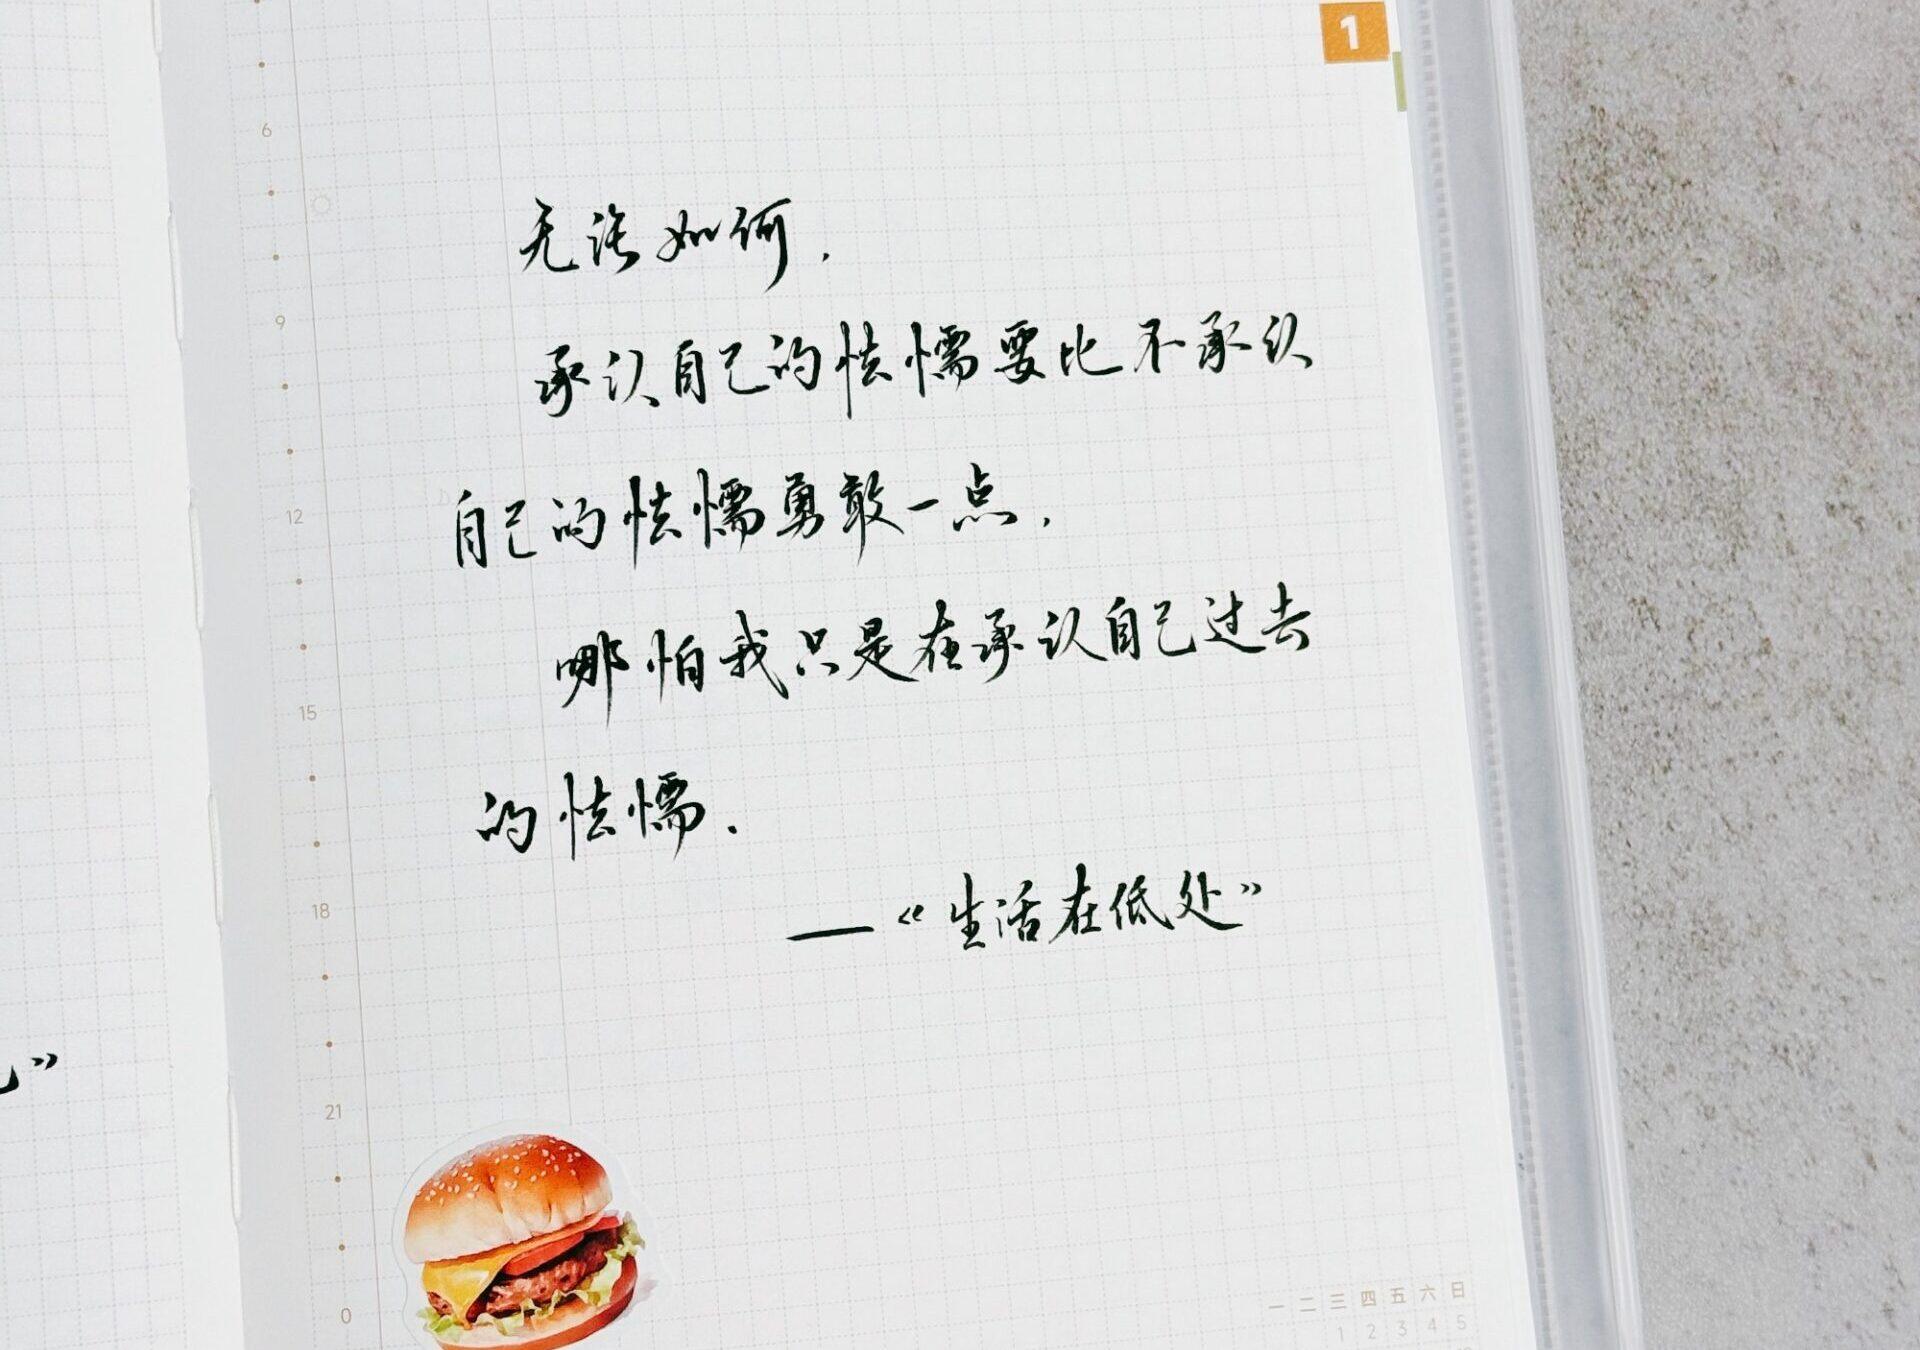 1
6
9
12
15
18
21
0
无论如何，
承认自己的怯懦要比不承认
自己的怯懦勇敢一点，
哪怕我只是在承认自己过去
的怯懦．
—“生活在低处”
”
一 二 三 四 五 六 日
1 2 3 4 5